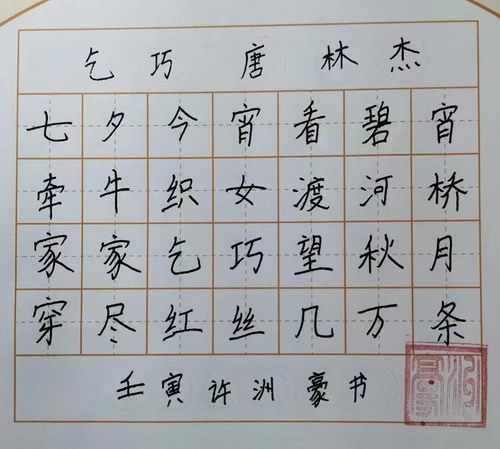 乞巧 唐 林杰
七夕今宵看碧宵
牵牛织女渡河桥
家家乞巧望秋月
穿尽红丝几万条
壬寅许洲豪书